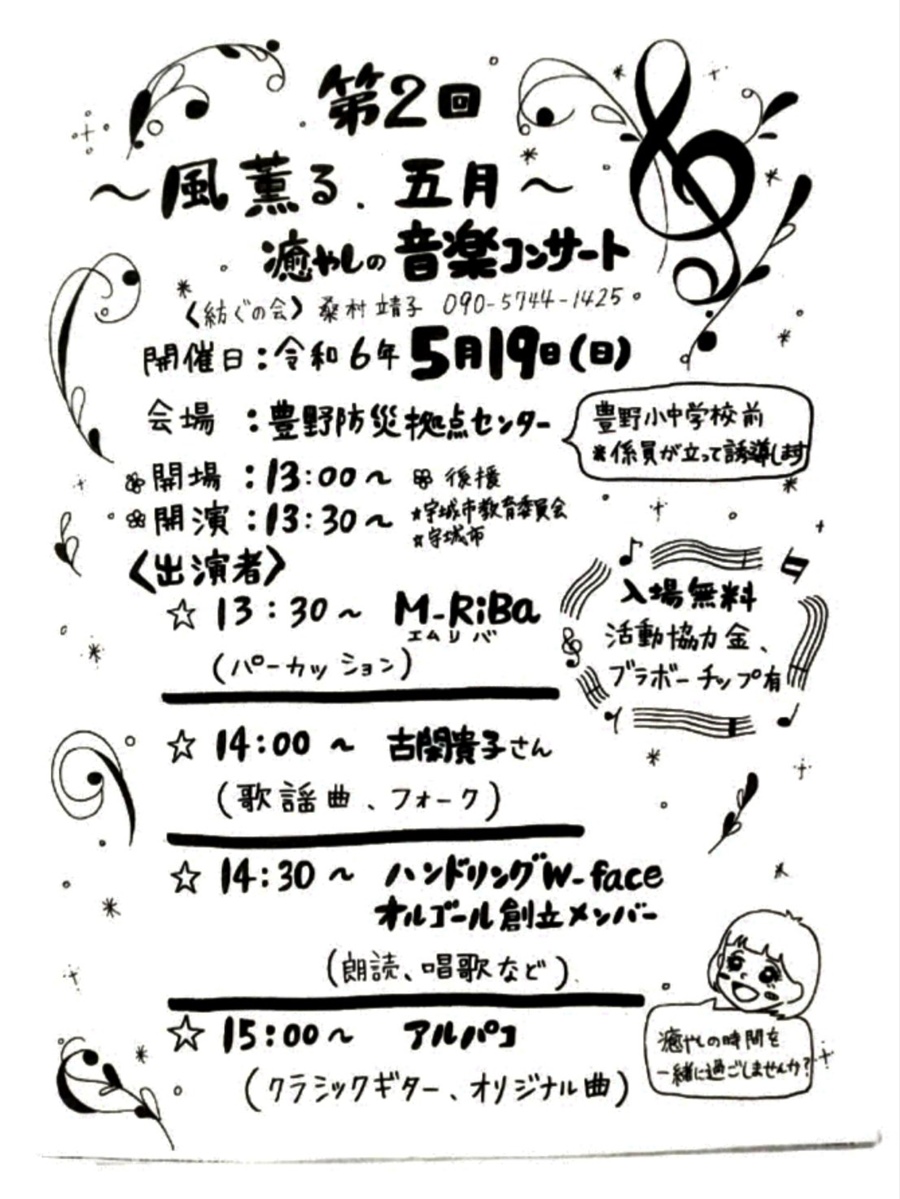 第2回
～風薫る、五月～
癒やしの音楽コンサート
〈紡ぐの会〉 桑村靖子 090-5744-1425
開催日：令和6年 5月19日(日)
会場：豊野防災拠点センター
豊野小中学校前
※係員が立って誘導します
開場：13:00～
後援
開演：13:30～
☆宇城市教育委員会
☆宇城市
〈出演者〉
☆ 13:30～ M-RiBa
エムリバ
(パーカッション)
入場無料
活動協力金、
ブラボーチップ有
☆ 14:00～ 古閑貴子さん
(歌謡曲、フォーク)
☆ 14:30～ ハンドリングW-face
オルゴール創立メンバー
(朗読、唱歌など)
☆ 15:00～ アルパコ
(クラシックギター、オリジナル曲)
癒やしの時間を
一緒に過ごしませんか？